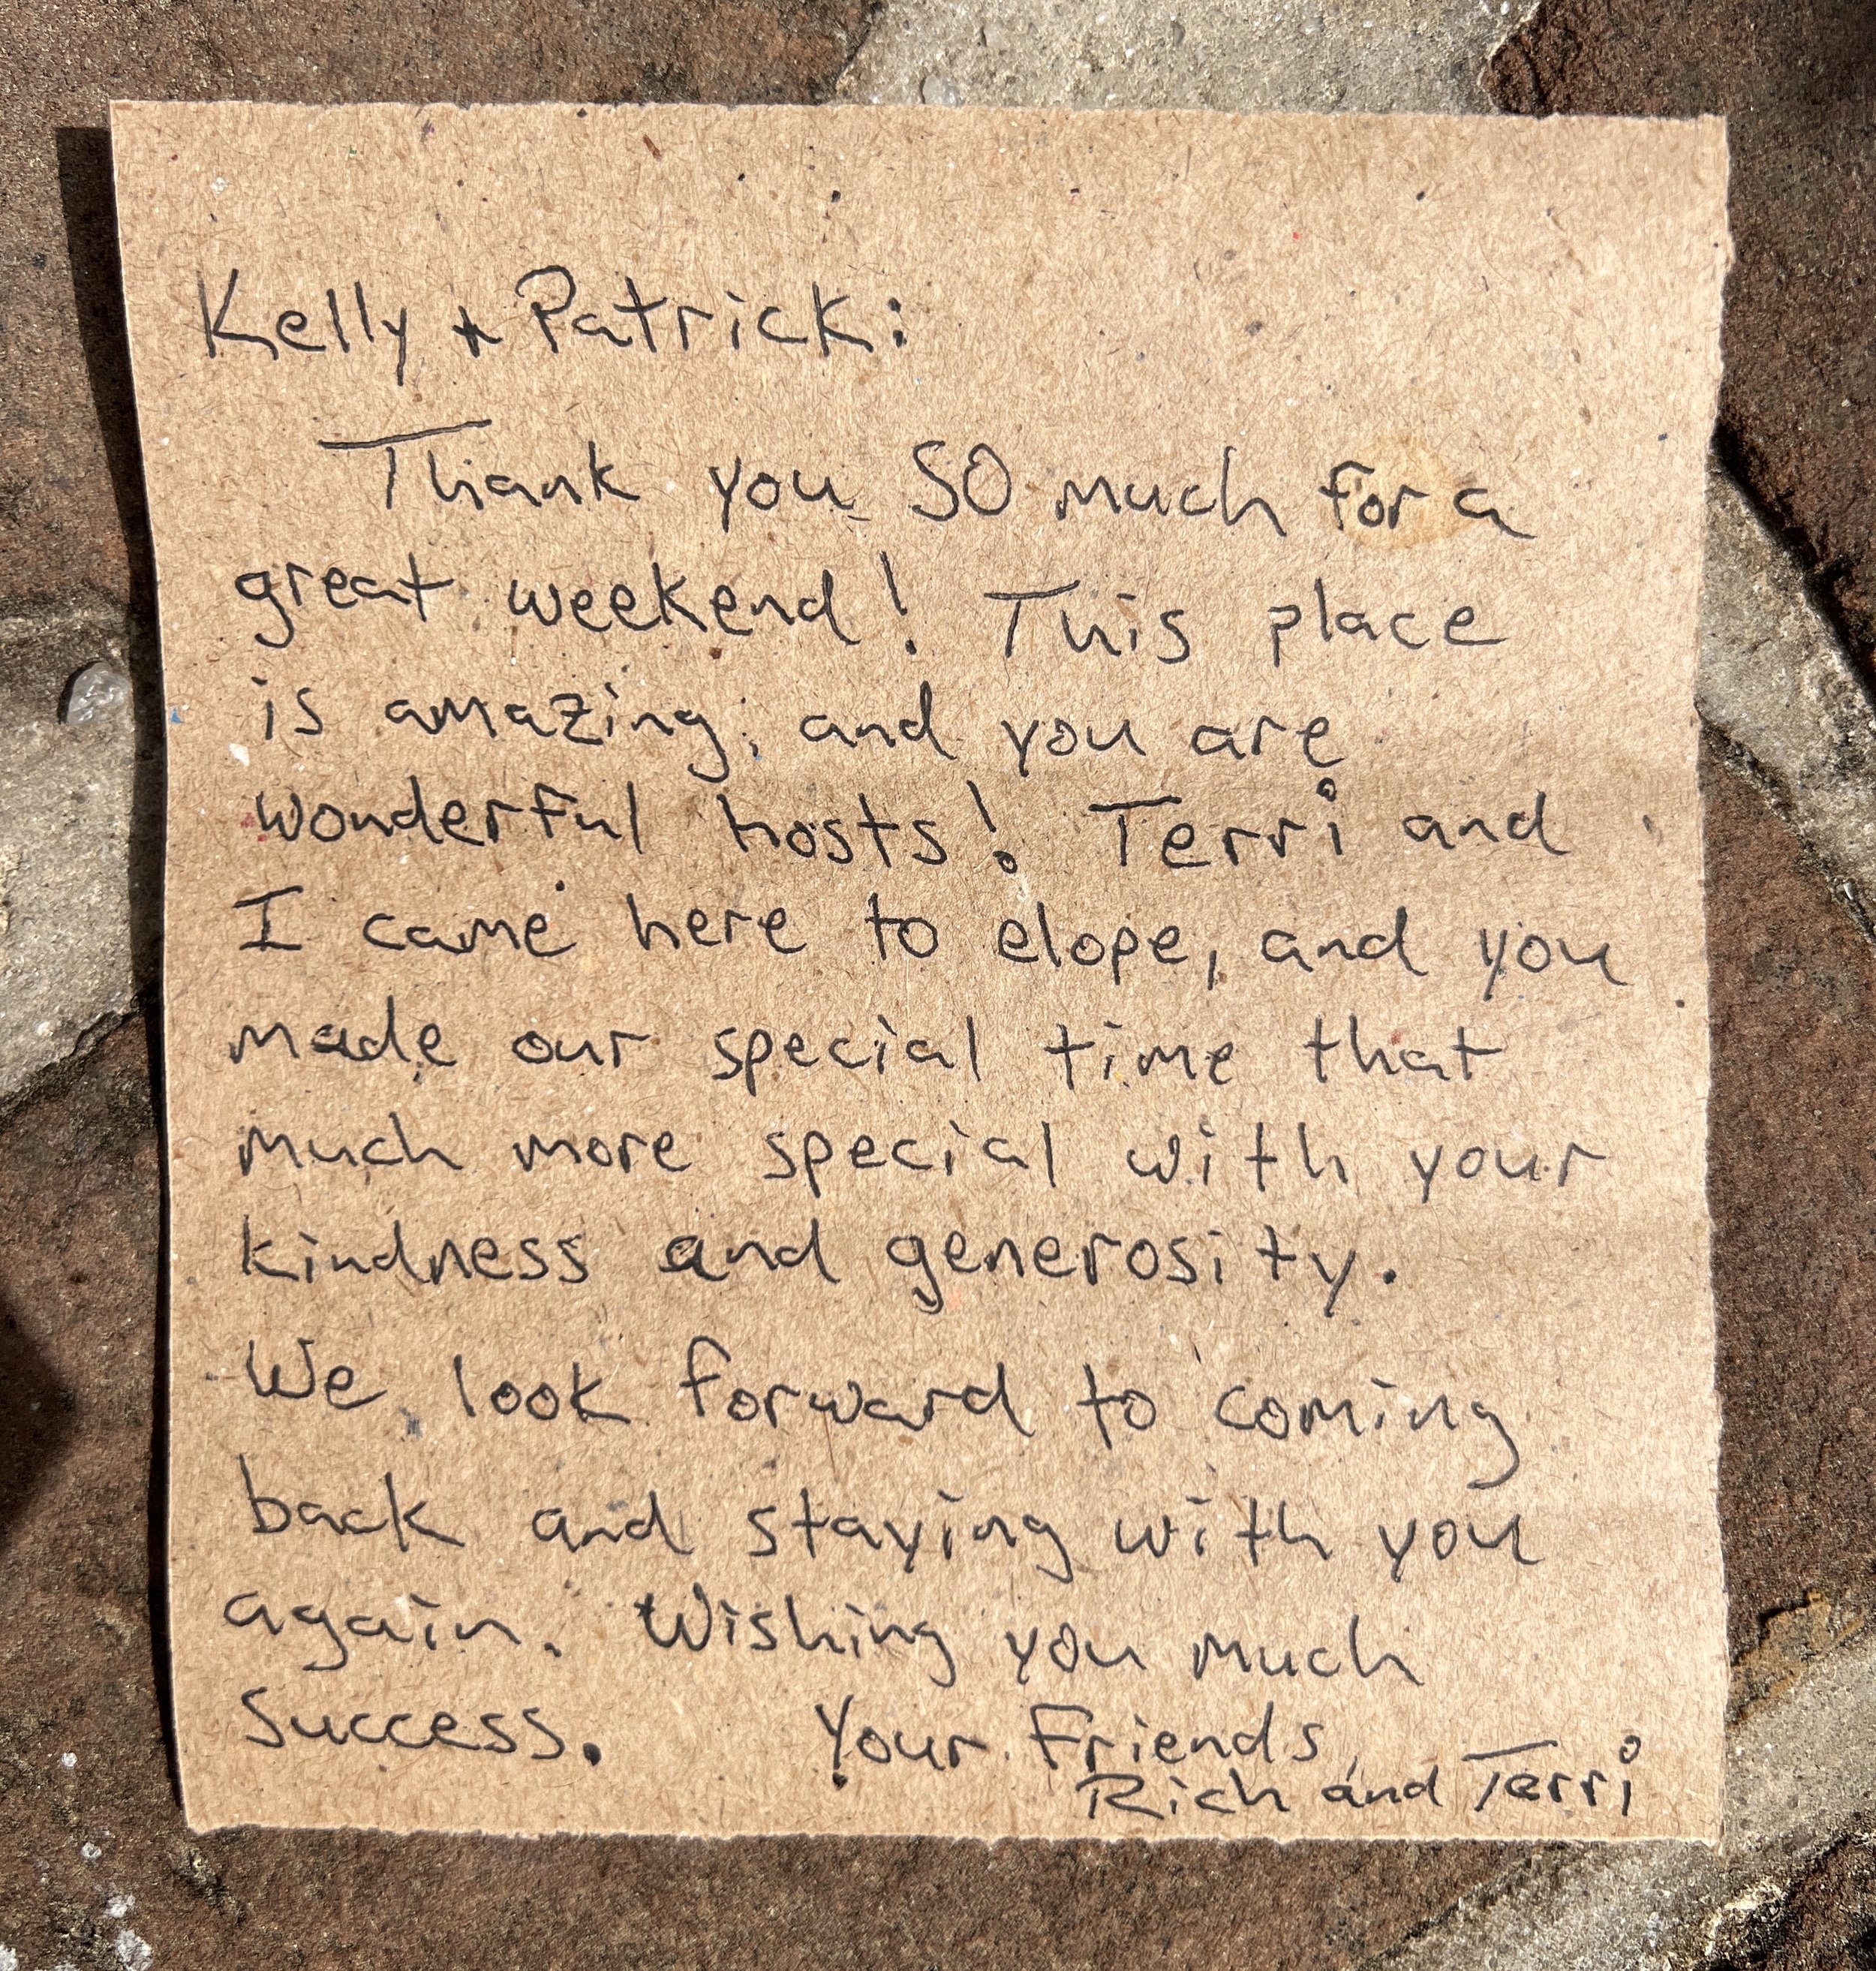 Kelly + Patrick:
Thank you SO much for a
great weekend! This place
is amazing, and you are
wonderful hosts! Terri and
I came here to elope, and you
made our special time that
much more special with your
kindness and generosity.
We look forward to coming
back and staying with you
again. Wishing you much
Success. Your Friends,
Rich and Terri